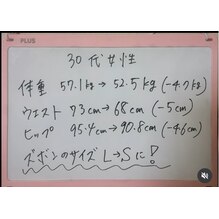 PLUS
30代女性
体重 57.1kg→52.5kg(-4.7kg)
ウエスト 73cm→68cm(-5cm)
ヒップ 95.4cm→90.8cm(-4.6cm)
ズボンのサイズ L→Sに!